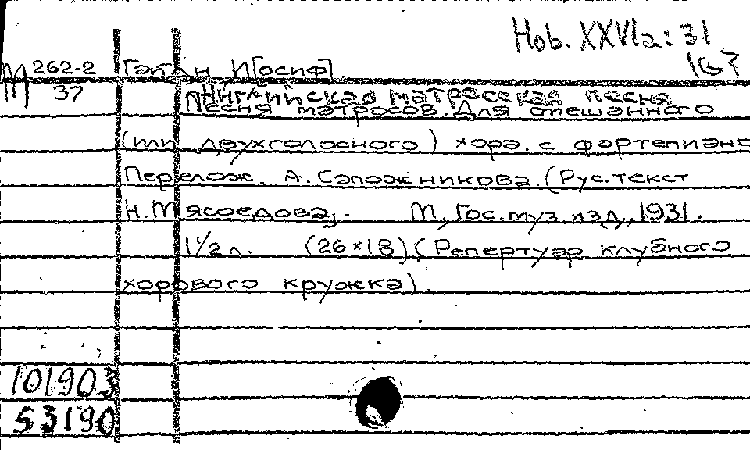 Hob. XXVIa: 31
М 262-2 Гайдн И[осиф]
37 Английская матросская песня
Песня матросов. Для смешанного
(или двухголосного) хора с фортепиано
Перелож. А. Сапожникова. (Рус. текст
Н. Мясоедова). М., Гос. муз. изд., 1931.
1/2 л. (26×18) (Репертуар клубного
хорового кружка).
101903
53190